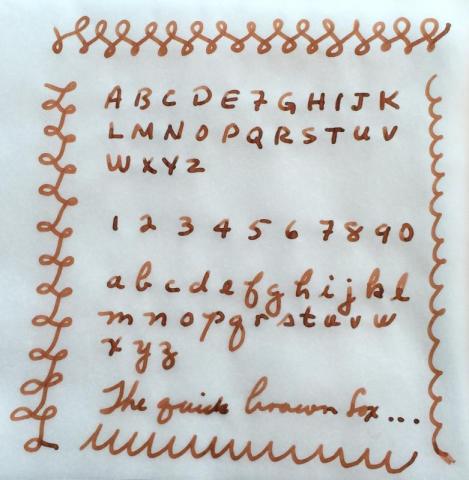 A B C D E F G H I J K
L M N O P Q R S T U V
W X Y Z
1 2 3 4 5 6 7 8 9 0
a b c d e f g h i j k l
m n o p q r s t u v w
x y z
The quick brown fox ...